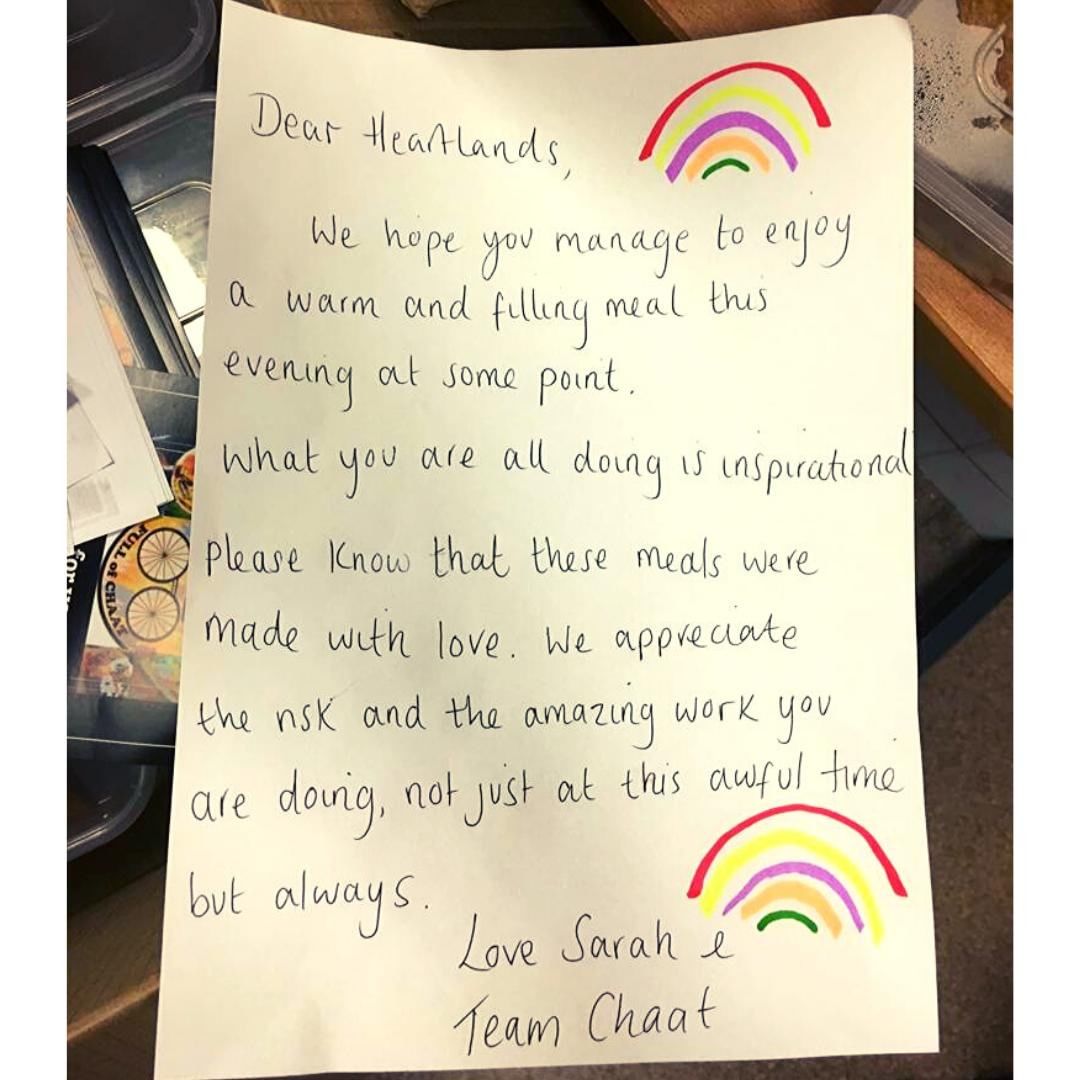 Dear Heartlands,
We hope you manage to enjoy
a warm and filling meal this
evening at some point.
What you are all doing is inspirational
Please know that these meals were
made with love. We appreciate
the risk and the amazing work you
are doing, not just at this awful time
but always.
Love Sarah &
Team Chaat
FULL OF CHAAT